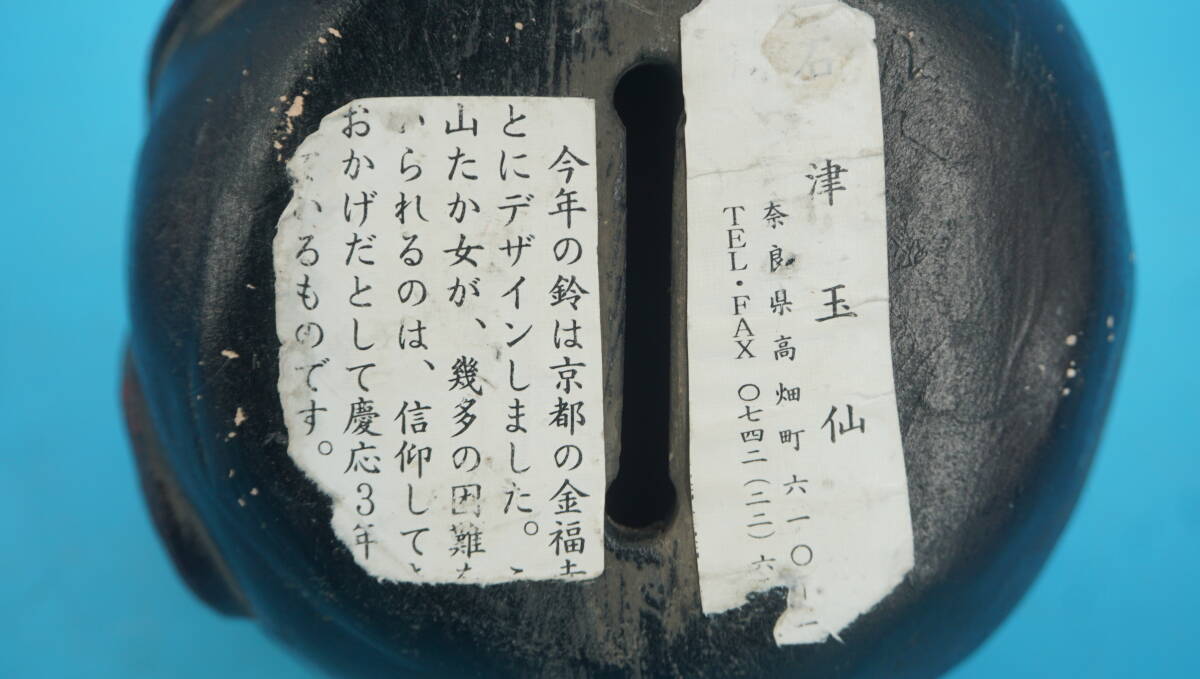 津玉仙
奈良県高畑町六一〇
TEL・FAX 〇七四二(二二)六
今年の鈴は京都の金福
とにデザインしました。
山たか女が、幾多の困難
いられるのは、信仰して
おかげだとして慶応3年
いるものです。